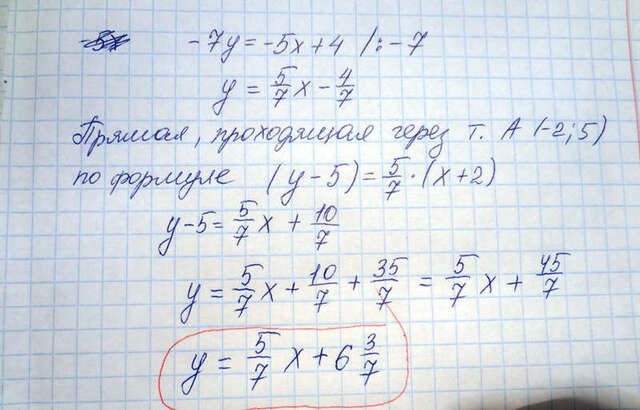 -7y = -5x + 4 /: -7
y = 5/7 x - 4/7
Прямая, проходящая через т. А (-2; 5)
по формуле (y - 5) = 5/7 · (x + 2)
y - 5 = 5/7 x + 10/7
y = 5/7 x + 10/7 + 35/7 = 5/7 x + 45/7
y = 5/7 x + 6 3/7